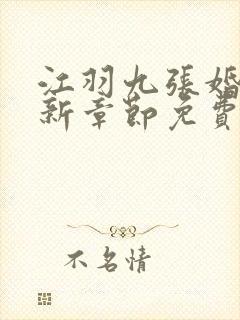 江羽九張婚
新章節免費
不名情